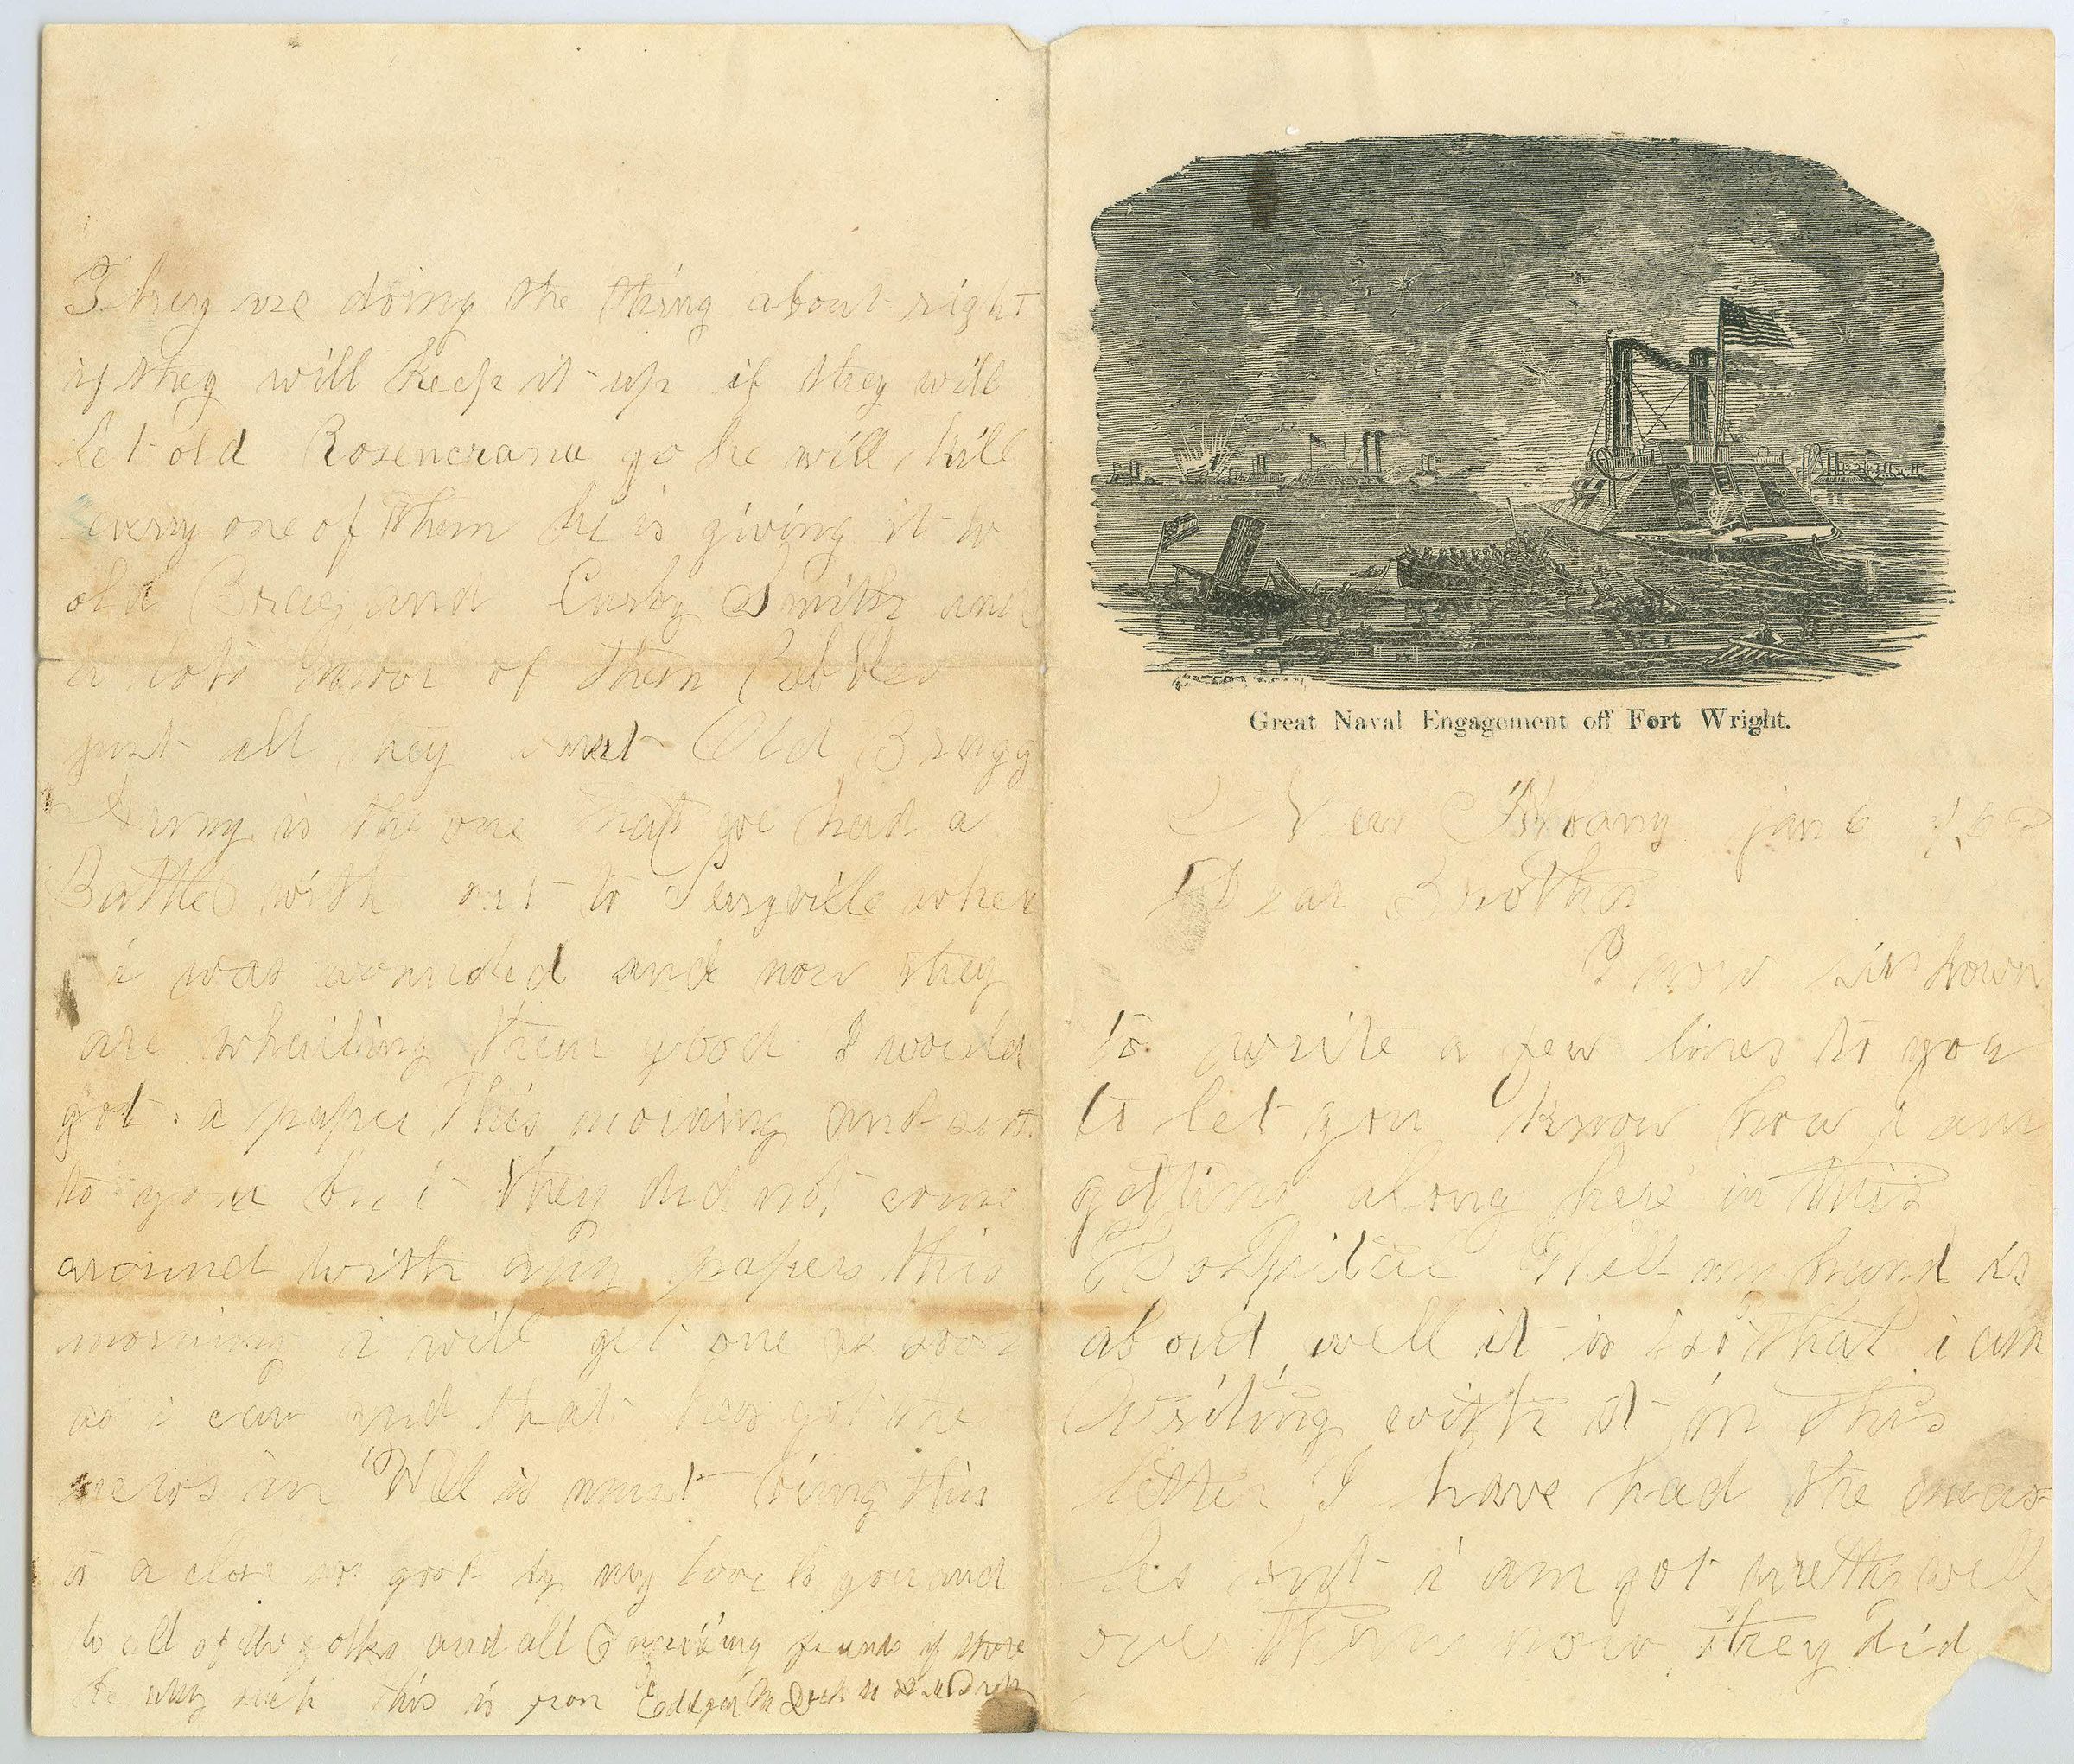 Great Naval Engagement off Fort Wright.
New Albany jan 6
Dear Brother
I now sit down
to write a few lines to you
to let you know how i am
getting along here in this
Hospital Well my hand is
about well it is so that i am
Writing with it in this
letter I have had the meas
les but i am got well
over them now they did
They are doing the thing about right
if they will keep it up if they will
let old Rosencrans go he will kill
every one of them he is giving it to
old Brag and Curby Smith and
a lots more of them
just all they want Old Bragg
Army is the one that we had a
Battle with out to when
i was wounded and now they
are whailing them good I would
got a paper This morning and sent
to you but they did not come
around with any papers this
morning i will get one as soon
as i can and that has got the
news in Well i must bring this
to a close so good by my love to you and
to all of the folks and all if there
be any such this is from